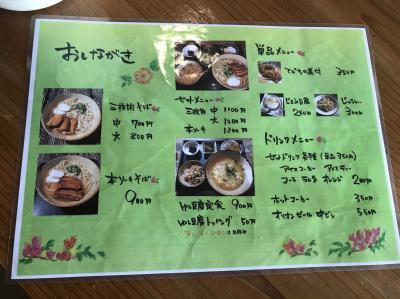 おしながき
三枚肉そば
中 700円
大 800円
本ソーキそば
900円
セットメニュー
三枚肉 中 1100円
大 1200円
本ソーキ 1300円
ゆし豆腐定食 900円
ゆし豆腐トッピング 50円
単品メニュー
てびちの煮付 350円
じーまーみ豆腐
250円
じゅーしー
300円
ドリンクメニュー
セットドリンク各種 (単品350円)
アイスコーヒー アイスティー
コーラ オレンジ 200円
ホットコーヒー 350円
オリオンビール 中ビン 550円